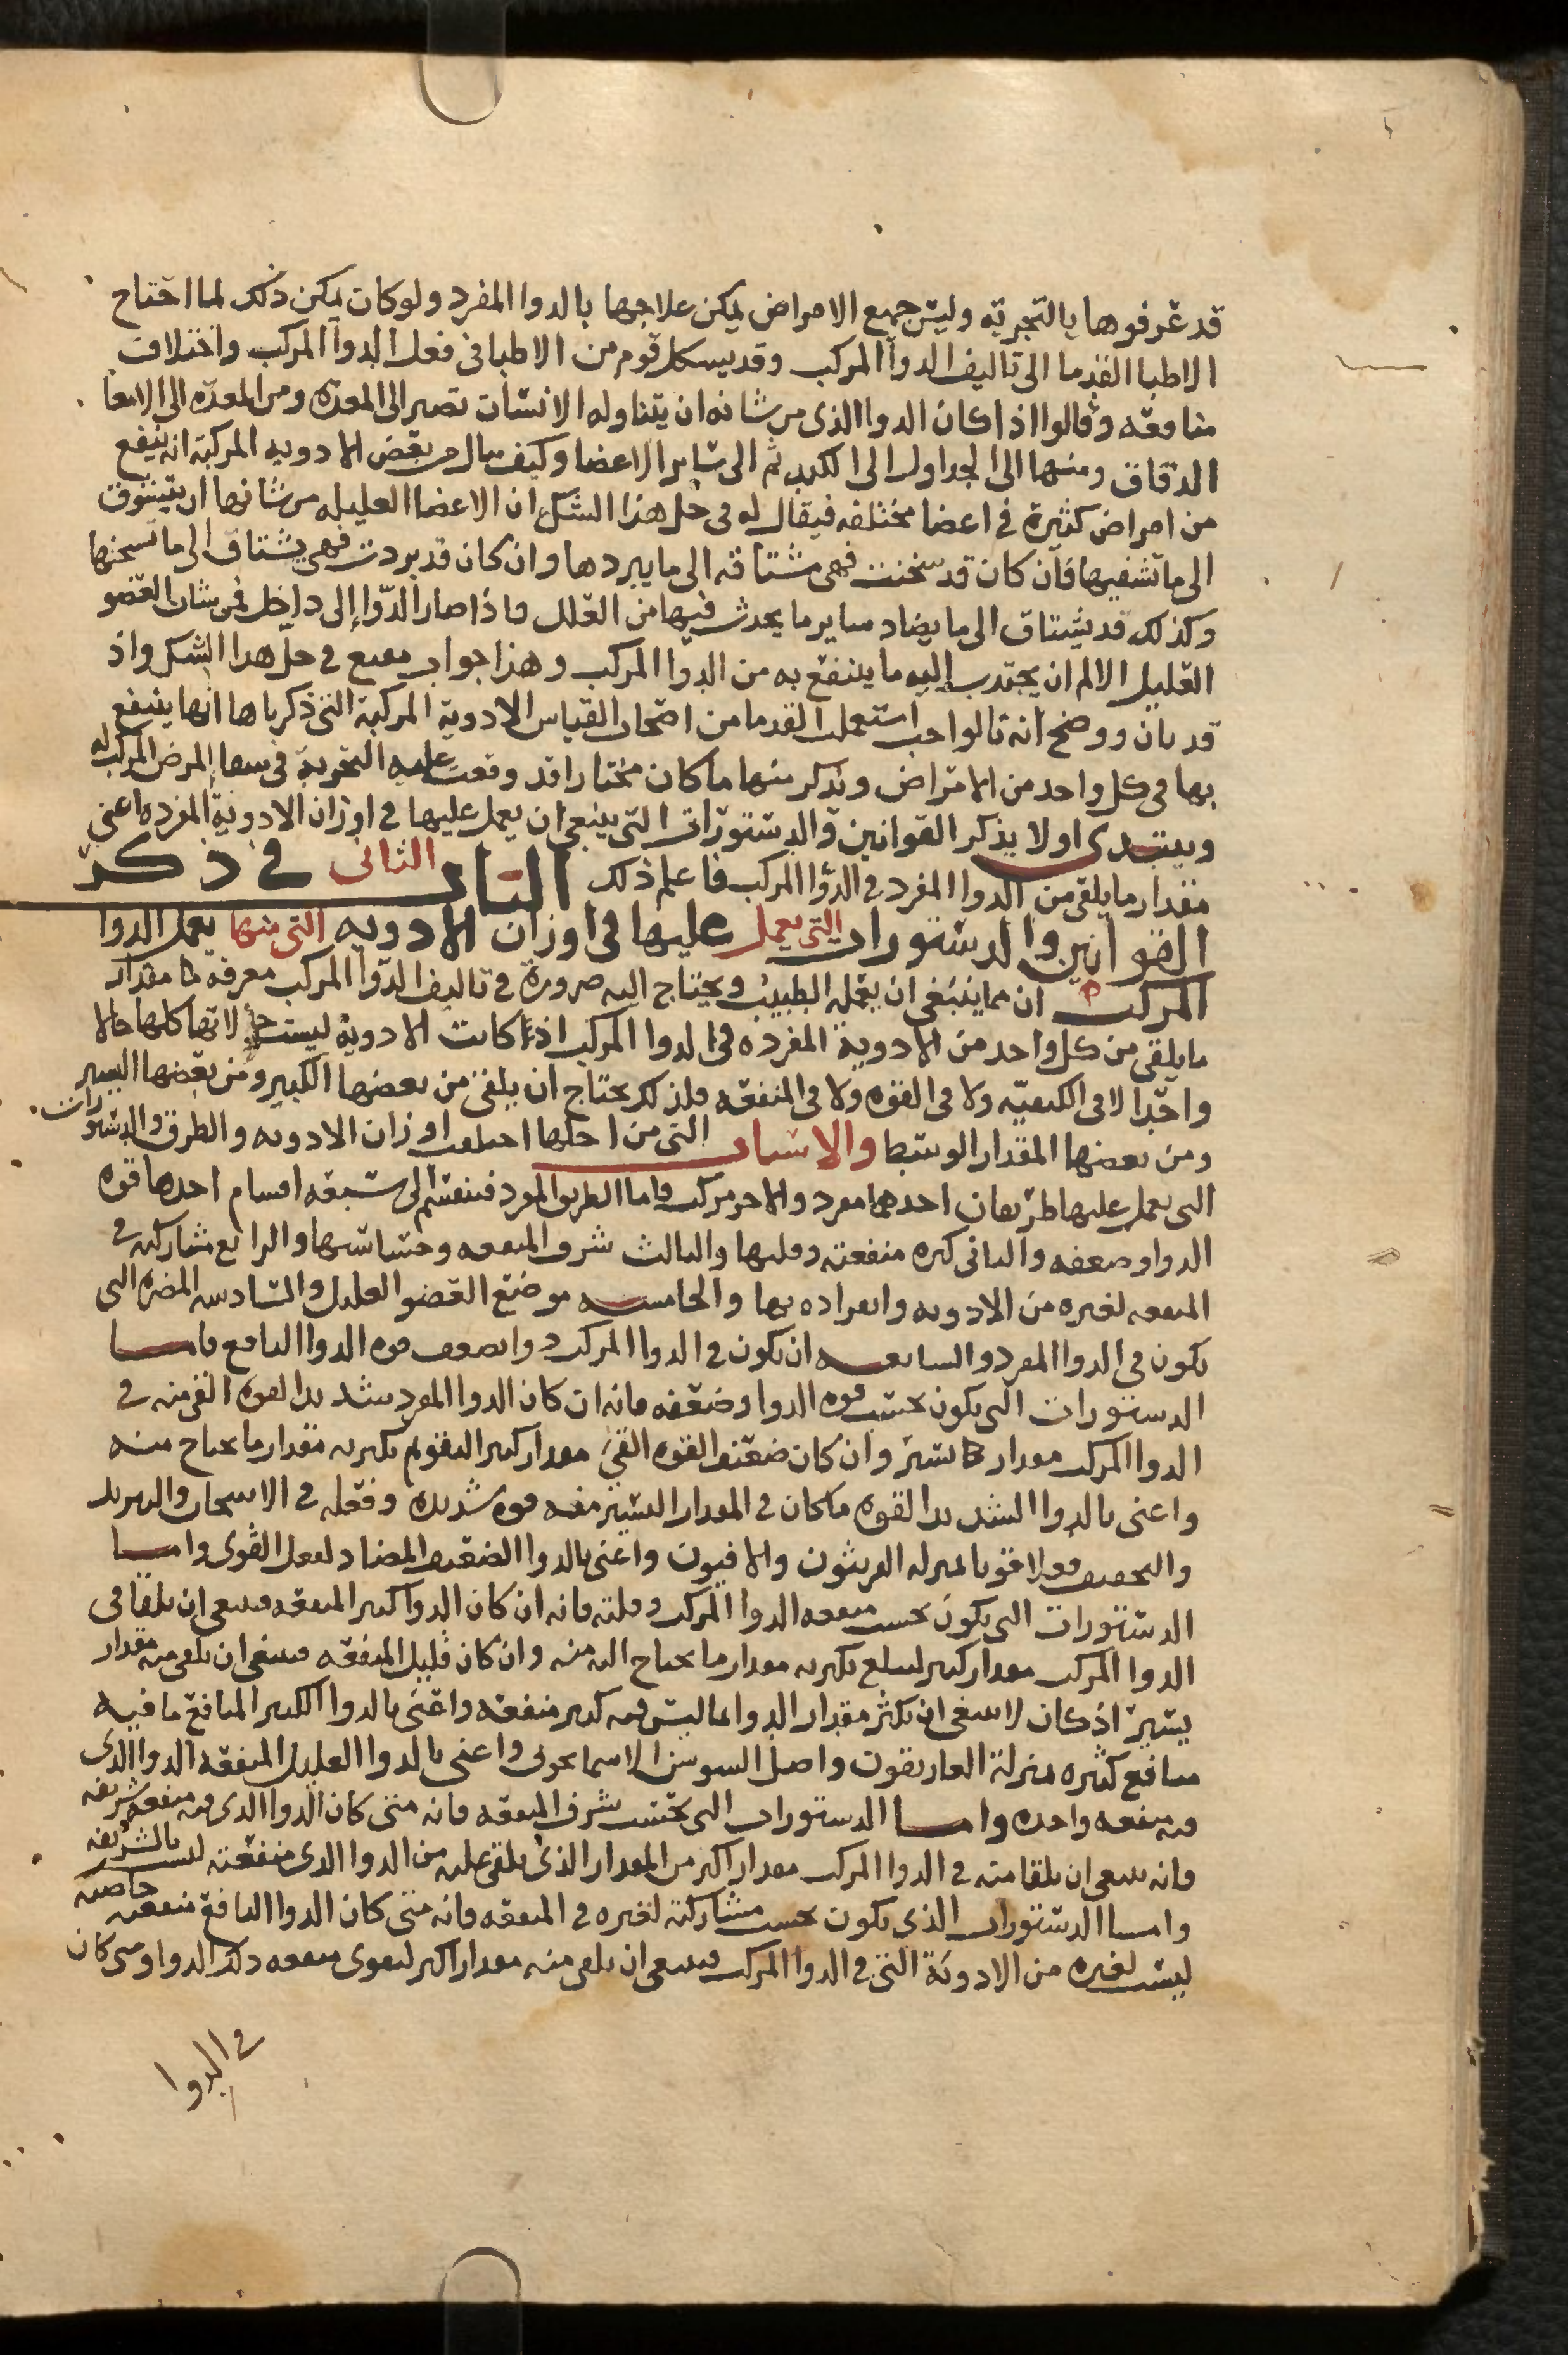 قد عرفوها بالتجربة وليس جميع الامراض يمكن علاجها بالدوا المفرد ولو كان يمكن ذلك لما احتاج
الاطبا القدما الى تاليف الدوا المركب وقد يسكل قوم من الاطبا في فعل الدوا المركب واختلاف
منافعه وقالوا اذا كان الدوا الذي من شانه ان يتناوله الانسان تصير الى المعده ومن المعده الى الامعا
الدقاق ومنها الى الجداول الى الكبد ثم الى ساير الاعضا وكيف يقال في بعض الادويه المركبة انه ينفع
من امراض كثيرة في اعضا مختلفه فيقال له في حل هذا الشك ان الاعضا العليله من شانها ان يتشوق
الى ما تشفيها فان كان قد سخنت فهي مشتاقه الى ما يبردها وان كان قد بردت فهي يشتاق الى ما تسخنها
وكذلك قد يشتاق الى ما يضاد ساير ما يحدث فيها من العلل فاذا صار الدوا الى داخل فمن شان العضو
العليل الالم ان يجتدب اليه ما ينتفع به من الدوا المركب وهذا جواب مقنع في حل هدا الشك واذ
قد بان ووضح انه بالواجب استعملت القدما من اصحاب القياس الادوية المركبة التي ذكرناها انها ينتفع
بها في كل واحد من الامراض ونذكر منها ما كان مختارا قد وقعت عليه التجربة في شفا المرض المركب له
ويبتدي اولا يذكر القوانين والدستورات التي ينبغي ان يعمل عليها في اوزان الادوية المفرده اعني
مقدار ما يلقى من الدوا المفرد في الدوا المركب فاعلم ذلك الباب الثاني في ذكر
القوانين والدستورات التي يعمل عليها في اوزان الادويه التي منها يعمل الدوا
المركب ان مما ينبغي ان يعمله الطبيب ويحتاج اليه ضرورة في تاليف الدوا المركب معرفه مقدار
ما يلقى من كل واحد من الادوية المفرده في الدوا المركب اذ كانت الادوية ليست حالاتها كلها حالا
واحدا لا في الكيفيه ولا في القوه ولا في المنفعه فلذلك يحتاج ان يلقى من بعضها الكبير ومن بعضها اليسير
ومن بعضها المقدار الوسط والاسباب التي من اجلها احتلفت اوزان الادويه والطرق والدستورات
التي يعمل عليها طريقان احدهما مفرد والاخر مركب فاما الطريق المفرد فينقسم الى سبعه اقسام احدها قوه
الدوا وضعفه والثاني كثره منفعته وقلتها والثالث شرف المنفعه وخساستها والرابع مشاركته في
المنفعه لغيره من الادويه وانفراده بها والخامسه موضع العضو العليل والسادسه المضره التي
يكون في الدوا المفرد والسابعه ان يكون في الدوا المركب دوا يضعف قوه الدوا النافع فاما
الدستورات التي يكون بحسب قوه الدوا وضعفه فانه ان كان الدوا المفرد شديد القوه القي منه في
الدوا المركب مقدار يسير وان كان ضعيف القوه القي مقدار كبير التقوم بكثرته مقدار ما يحتاج منه
واعني بالدوا الشديد القوه ما كان في المقدار اليسير منه قوه شديده وفعله في الاسخان والتبريد
والتجفيف فعلا قويا بمنزله الفربيون والافيون واعني بالدوا الضعيف المضاد لفعل القوى واما
الدستورات التي يكون بحسب منفعه الدوا المركب وقلته فانه ان كان الدوا كثير المنفعه فينبغي ان يلقا في
الدوا المركب مقدار كبير ليبلغ بكثرته مقدار ما يحتاج اليه منه وان كان قليل المنفعه فينبغي ان يلقى منه مقدار
يسير اذ كان لا ينبغي ان يكثر مقدار الدوا ما ليس فيه كثير منفعه واعني بالدوا الكثير المنافع ما فيه
منافع كثيره بمنزلة الغاريقون واصل السوسن الاسمانجوني واعني بالدوا القليل المنفعه الدوا الذي
فيه منفعه واحده واما الدستورات التي بحسب شرف المنفعه فانه متى كان الدوا الذي فيه منفعه شريفه
فانه ينبغي ان يلقا منه في الدوا المركب مقدار اكبر من المقدار الذي يلقى عليه من الدوا الذي منفعته ليست بالشريفه
واما الدستورات الذي يكون بحسب مشاركته لغيره في المنفعه فانه متى كان الدوا النافع منفعته خاصيه
ليست لغيره من الادوية التي في الدوا المركب فينبغي ان يلقى منه مقدار اكبر لتقوى منفعه ذلك الدوا ومتى كان
في الدوا